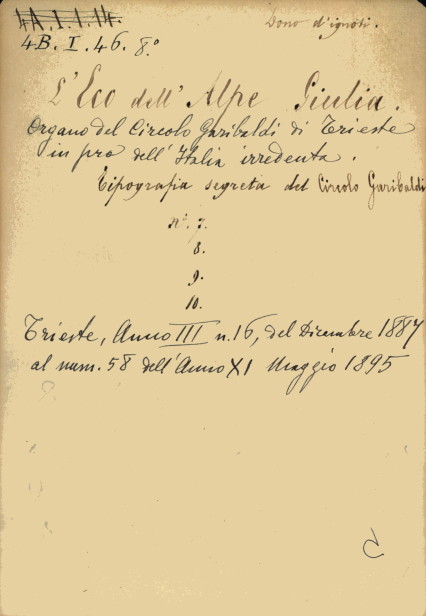 4A.I.1.14.
Dono d'ignoti.
4B. I. 46. 8°
L'Eco dell'Alpe Giulia.
Organo del Circolo Garibaldi di Trieste
in pro dell'Italia irredenta.
Tipografia segreta del Circolo Garibaldi
N°. 7.
8.
9.
10.
Trieste, Anno III n. 16, del Dicembre 1887
al num. 58 dell'Anno XI Maggio 1895